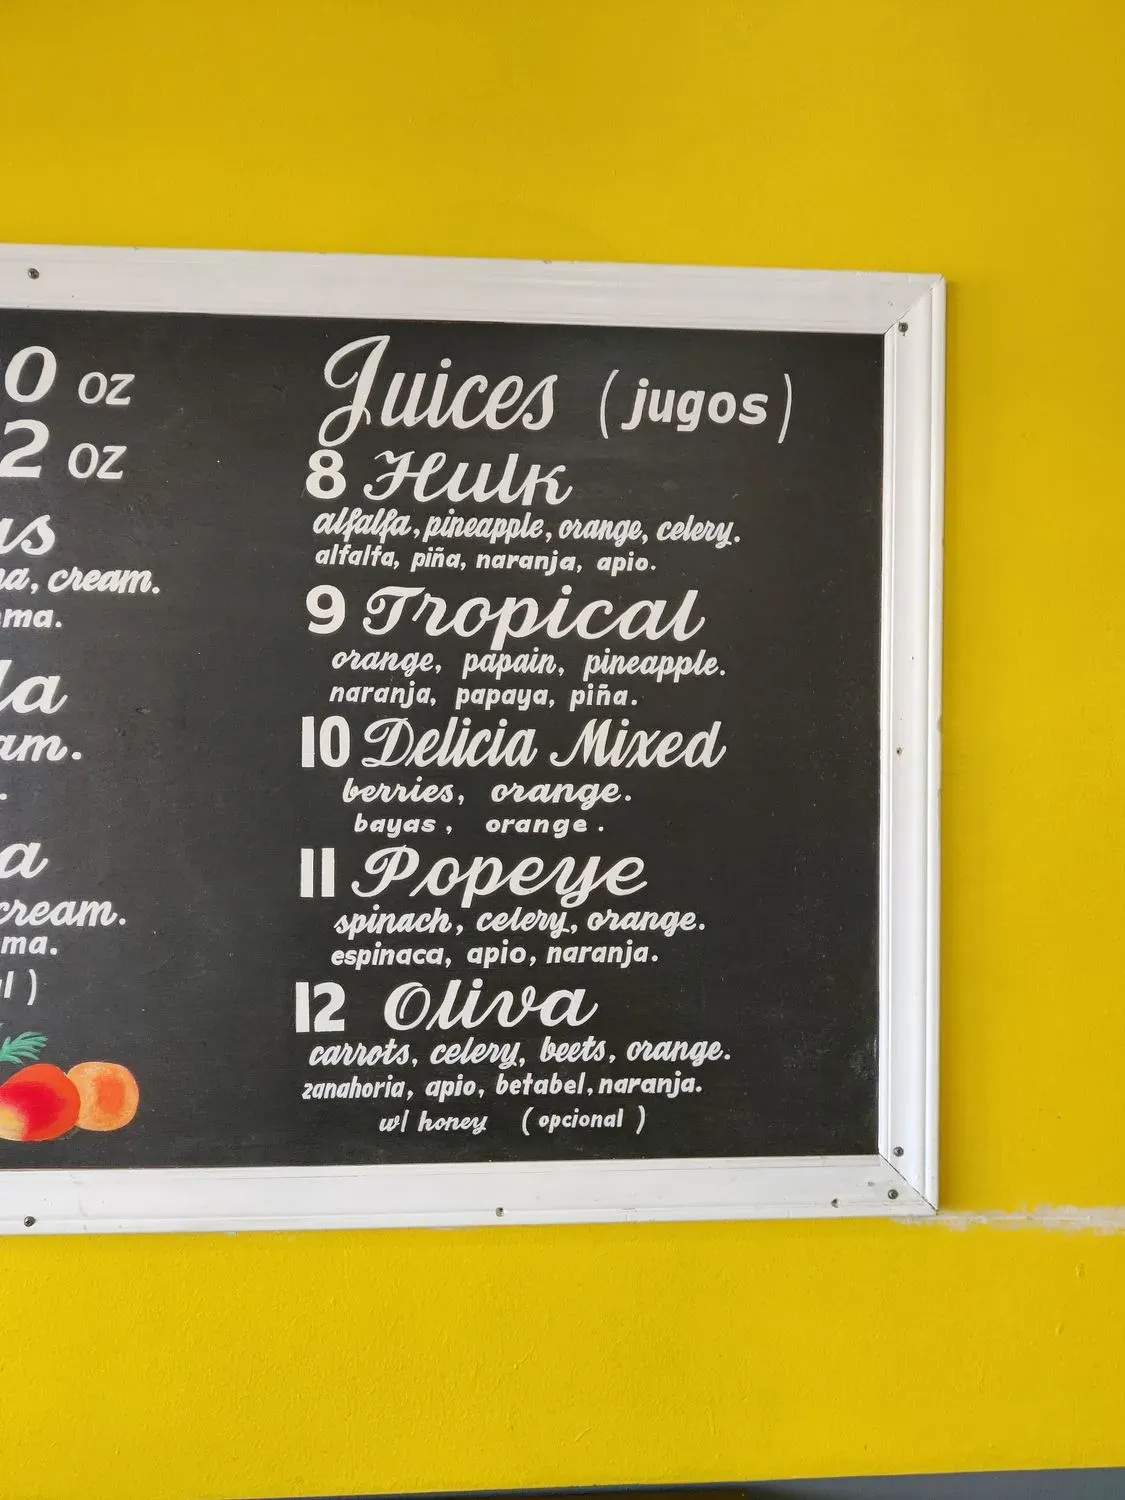 0 oz
2 oz
cream.
cream.
Juices (jugos)
8 Hulk
alfalfa, pineapple, orange, celery.
alfalfa, piña, naranja, apio.
9 Tropical
orange, papain, pineapple.
naranja, papaya, piña.
10 Delicia Mixed
berries, orange.
bayas, orange.
11 Popeye
spinach, celery, orange.
espinaca, apio, naranja.
12 Oliva
carrots, celery, beets, orange.
zanahoria, apio, betabel, naranja.
w/ honey (opcional)